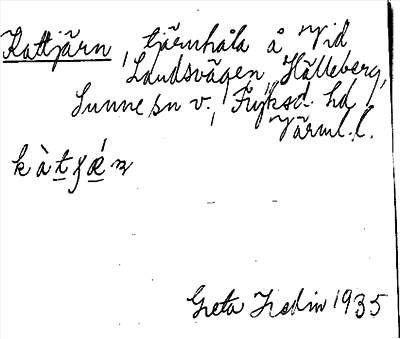 Kattjärn, tjärnhåla å vid
Landsvägen, Hälleberg,
Sunne sn v., Fryksd. hd,
Värml. l.
kàtjæ´n
Greta Hedin 1935